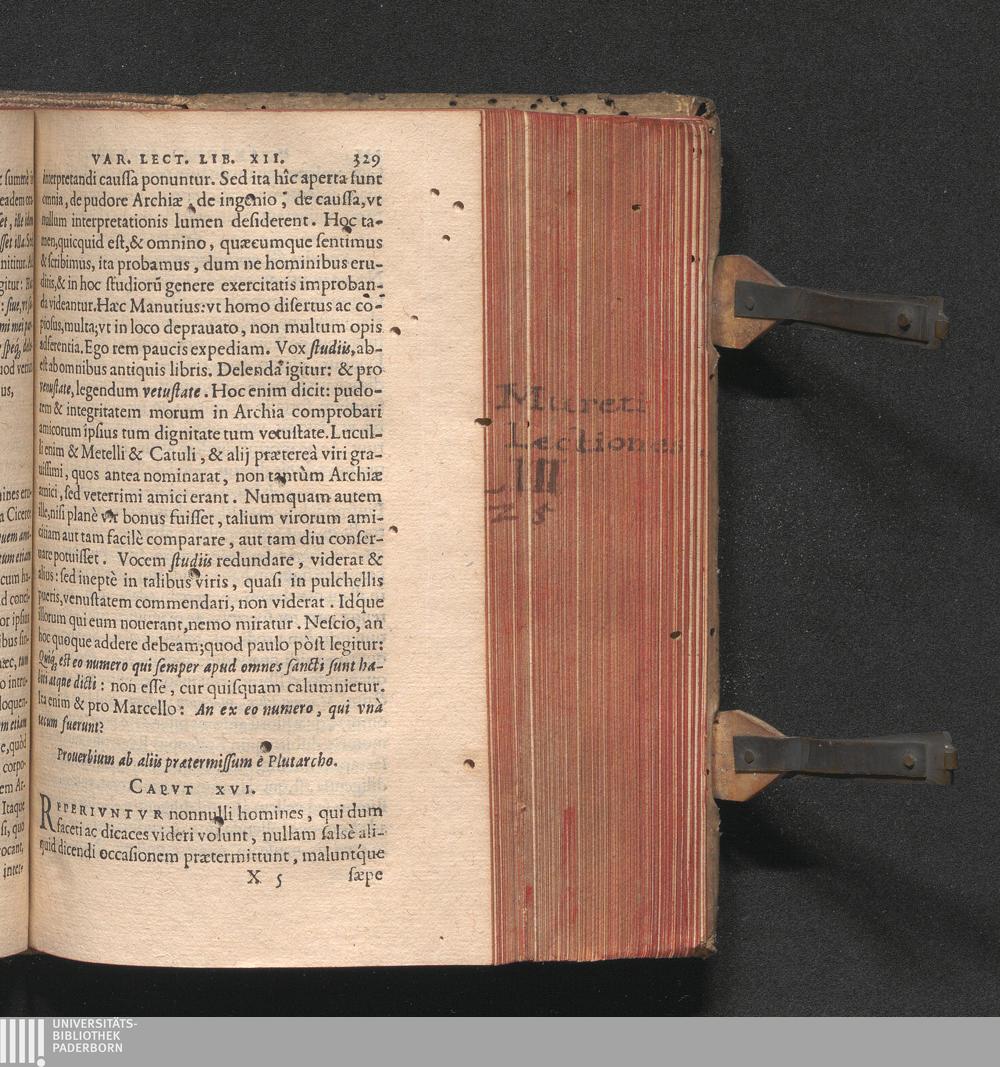 VAR. LECT. LIB. XII. 329
interpretandi caussa ponuntur. Sed ita hîc aperta sunt
omnia, de pudore Archiæ, de ingenio; de caussa, vt
nullum interpretationis lumen desiderent. Hoc ta-
men, quicquid est, & omnino, quæcumque sentimus
& scribimus, ita probamus, dum ne hominibus eru-
ditis, & in hoc studiorũ genere exercitatis improban-
da videantur. Hæc Manutius: vt homo disertus ac co-
piosus, multa; vt in loco deprauato, non multum opis
adferentia. Ego rem paucis expediam. Vox studiis, ab-
est ab omnibus antiquis libris. Delenda igitur: & pro
venustate, legendum vetustate. Hoc enim dicit: pudo-
rem & integritatem morum in Archia comprobari
amicorum ipsius tum dignitate tum vetustate. Lucul-
li enim & Metelli & Catuli, & alij prætereà viri gra-
uissimi, quos antea nominarat, non tantùm Archiæ
amici, sed veterrimi amici erant. Numquam autem
ille, nisi planè vir bonus fuisset, talium virorum ami-
citiam aut tam facilè comparare, aut tam diu conser-
uare potuisset. Vocem studiis redundare, viderat &
alius: sed ineptè in talibus viris, quasi in pulchellis
pueris, venustatem commendari, non viderat. Idq́ue
illorum qui eum nouerant, nemo miratur. Nescio, an
hoc quoque addere debeam; quod paulo pòst legitur:
Quiq́, est eo numero qui semper apud omnes sancti sunt ha-
biti atque dicti: non esse, cur quisquam calumnietur.
Ita enim & pro Marcello: An ex eo numero, qui vnà
tecum fuerunt?
Prouerbium ab aliis prætermissum è Plutarcho.
CAPVT XVI.
REPERIVNTVR nonnulli homines, qui dum
faceti ac dicaces videri volunt, nullam salsè ali-
quid dicendi occasionem prætermittunt, maluntq́ue
X 5 sæpe
Mureti
Lectiones
III
Z 5
UNIVERSITÄTS-
BIBLIOTHEK
PADERBORN